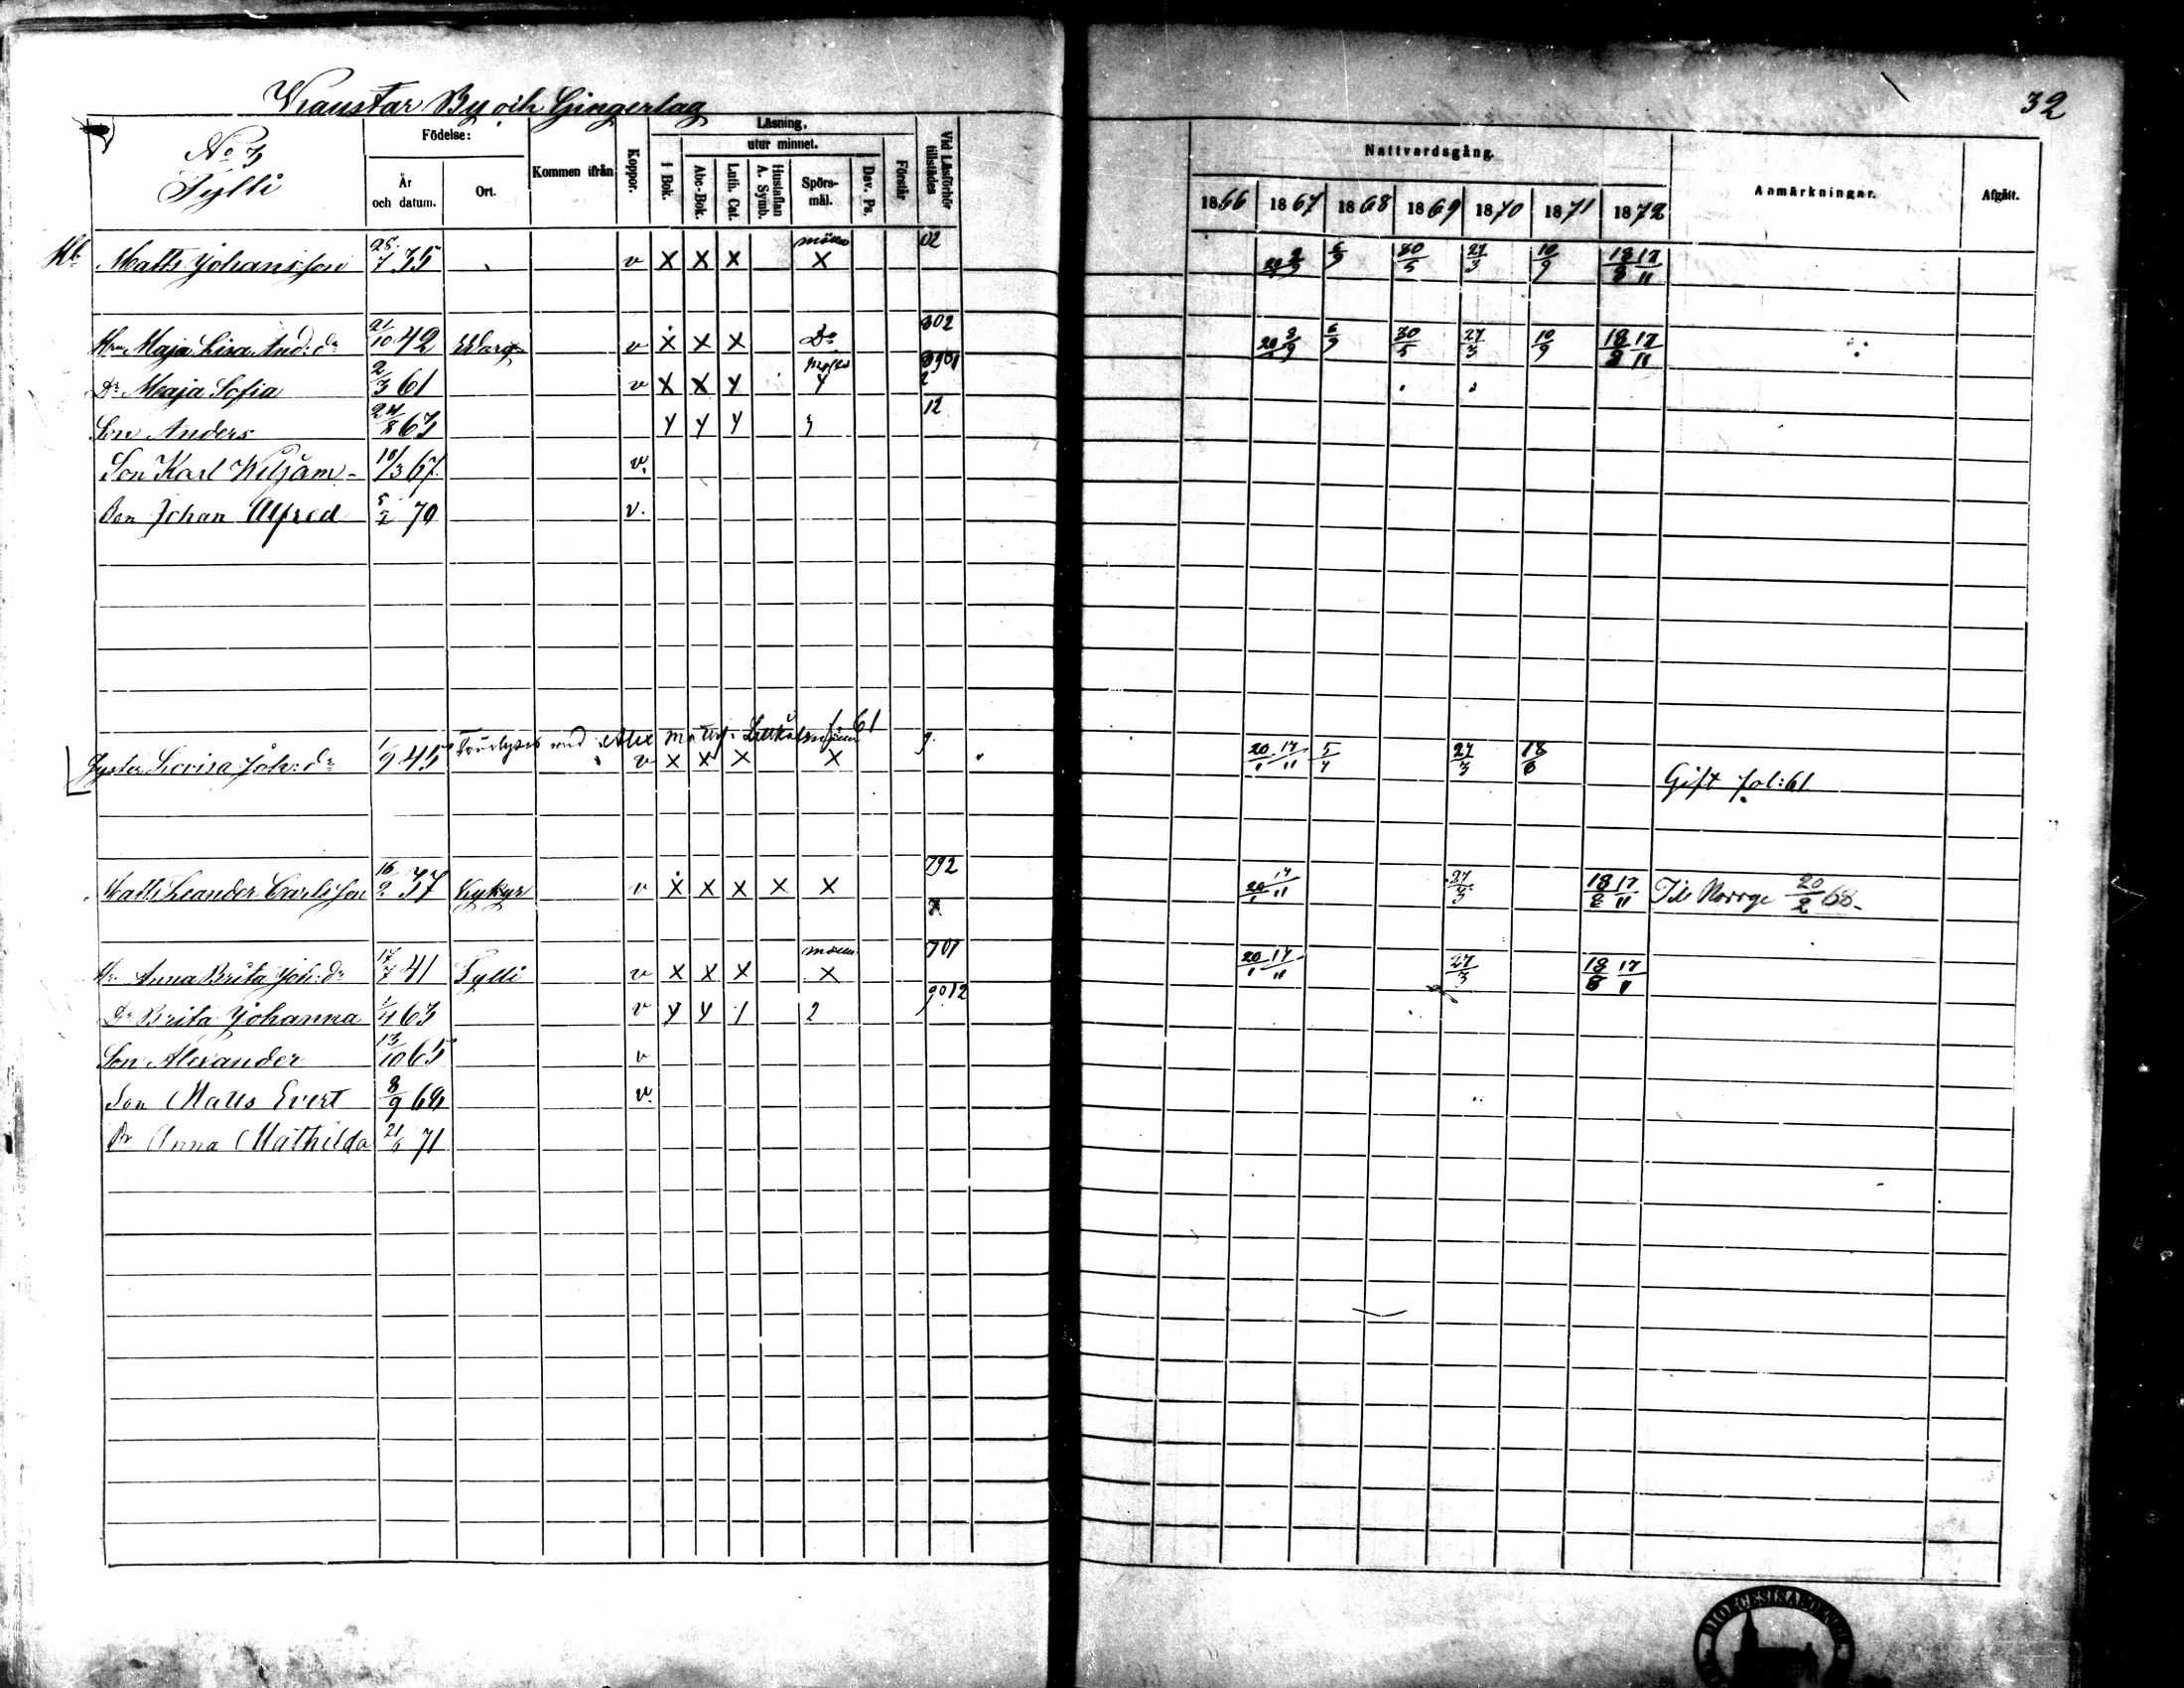 By och Gingerlag
32
No 3
Tylli
Födelse:
År och datum.
Ort.
Kommen ifrån
Koppor.
Läsning,
utur minnet.
I Bok.
Abc-Bok.
Luth. Cat.
Hustaflan A. Symb.
Spörs-mål.
Dav. Ps.
Förstår
Vid Läsförhör tillstädes
Nattvardsgång.
1866 1867 1868 1869 1870 1871 1872
Anmärkningar.
Afgått.
Matts Johansson 25/7 35 v X X X X 02 6/9 30/5 27/3 10/9 18/8 17/11
Maja Lisa And:dr 21/10 42 v X X X Do 302 6/9 30/5 27/3 10/9 18/8 17/11
Dr Maja Sofia 2/3 61 v X X Y Y
Son Anders 24/8 63 Y Y Y 3 12
Son Karl Wiljam 10/3 67 v.
Son Johan Alfred 5/2 70 v.
Syster Lovisa Joh:dr 1/9 45 v X X X X 9 20/1 17/11 27/3 18/6 Gift fol: 61
Matts Leander Carlsson 16/2 37 Kykyr v X X X X X 792 20/1 17/11 27/3 18/8 17/11 Till Norrge 20/2 68
Anna Brita Joh:dr 17/7 41 Tylli v X X X X 701 20/1 17/11 27/3 18/8 17/11
Dr Brita Johanna 1/4 63 v Y Y 1 2 9012
Son Alexander 13/10 65 v
Son Matts Evert 8/9 68 v.
Dr Anna Mathilda 21/6 71